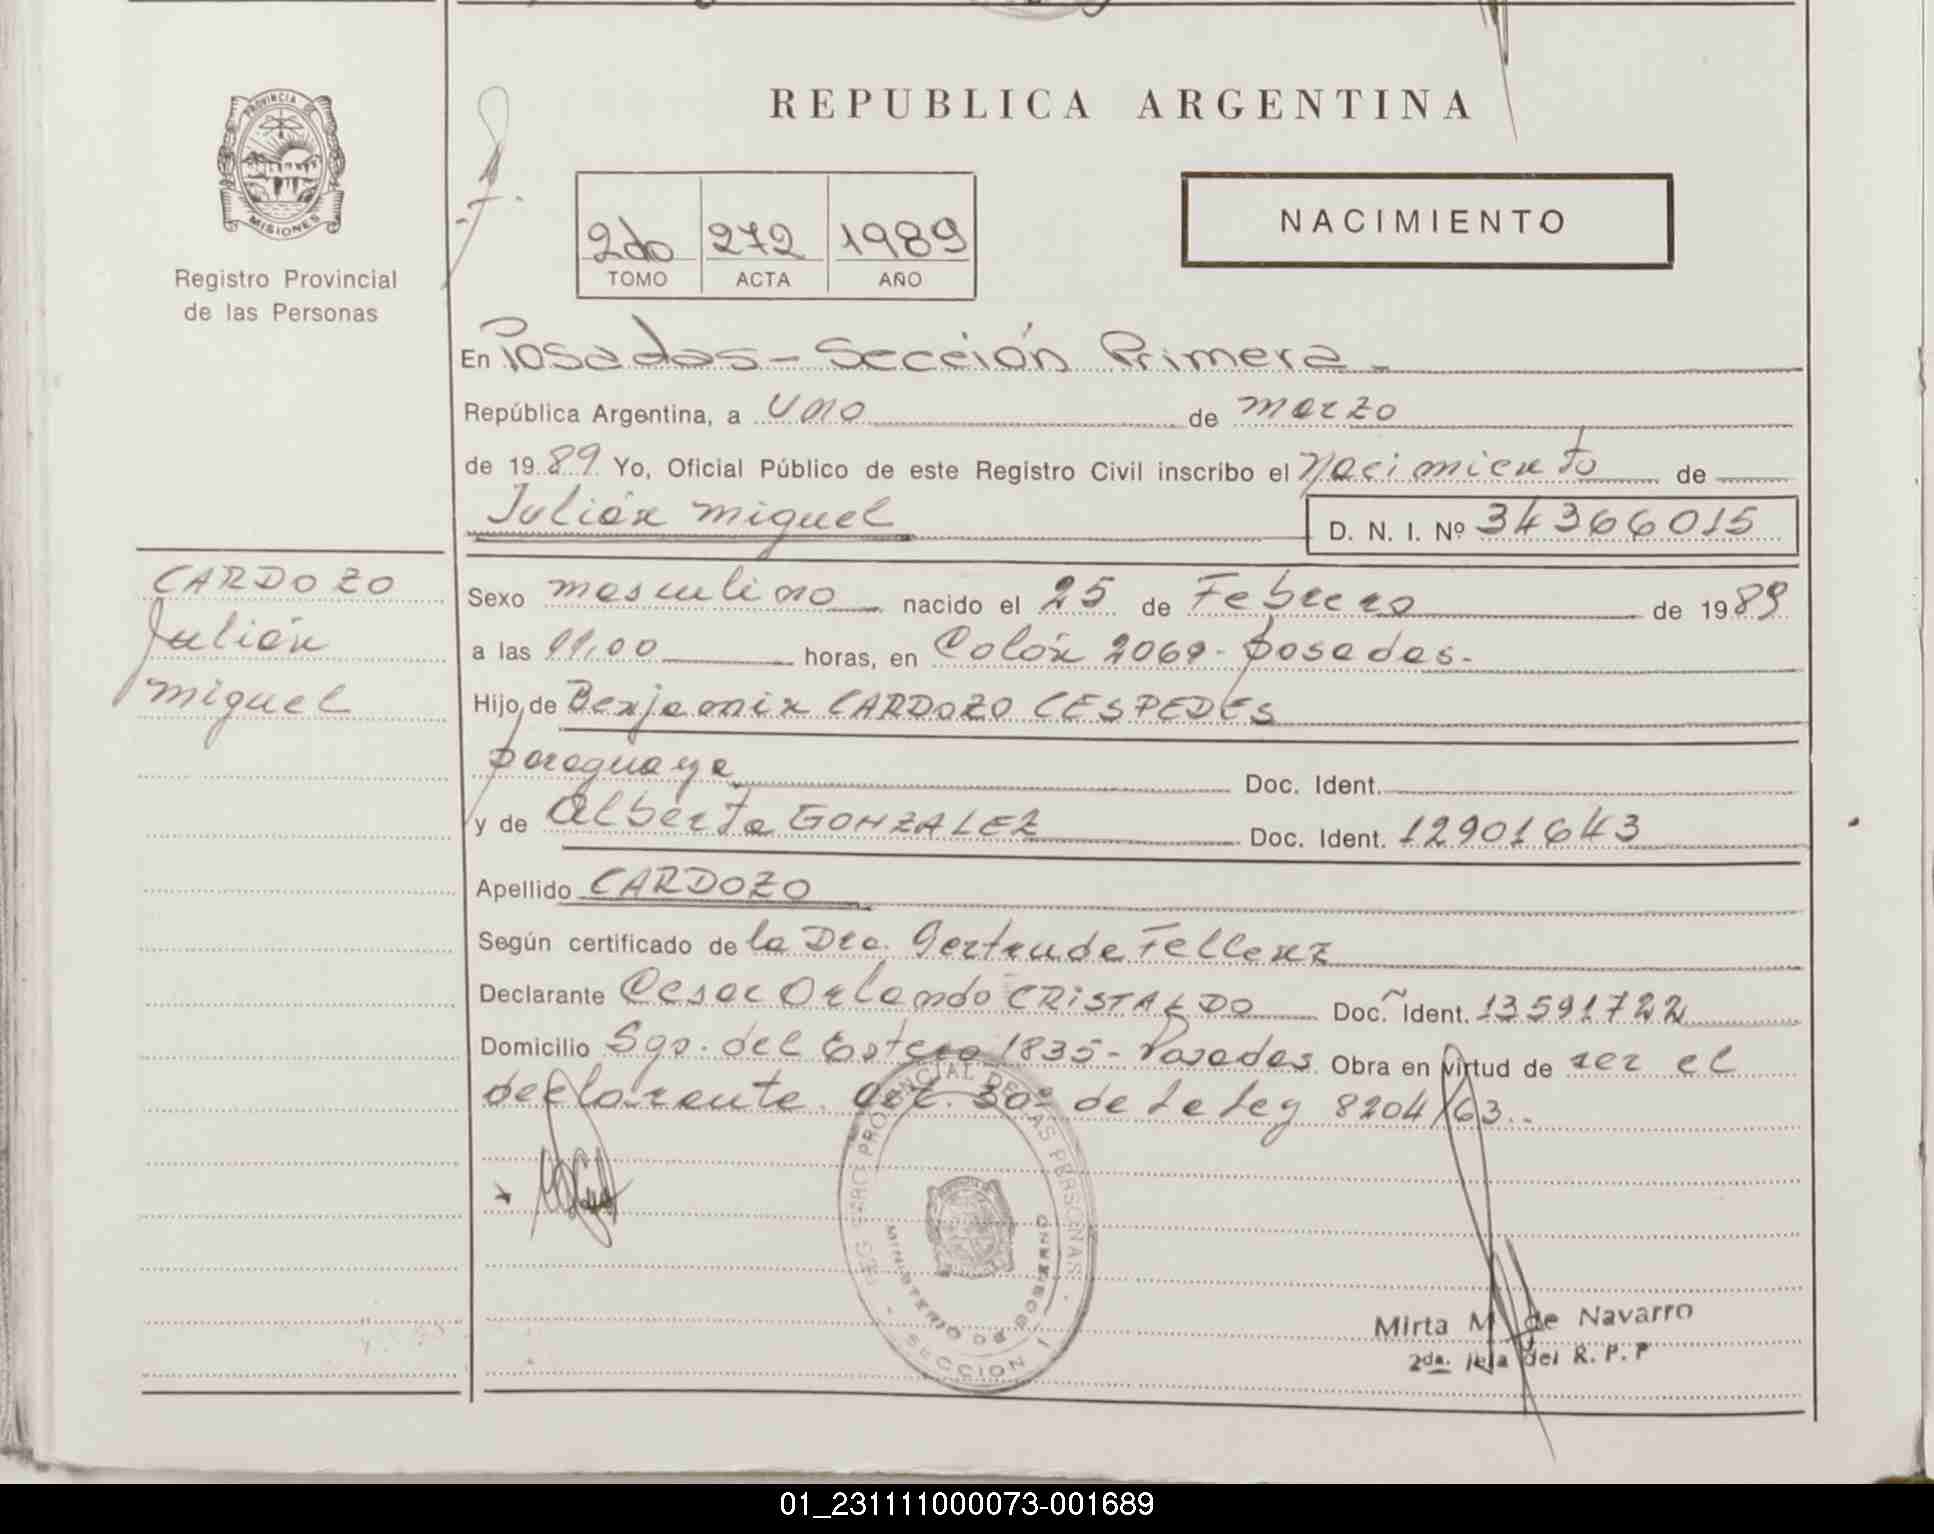 REPUBLICA ARGENTINA
PROVINCIA
MISIONES
Registro Provincial
de las Personas
2do 272 1989
TOMO ACTA AÑO
NACIMIENTO
En Posadas - Sección Primera -
República Argentina, a uno de marzo
de 1989 Yo, Oficial Público de este Registro Civil inscribo el nacimiento de
Julián Miguel D. N. I. Nº 34366015
CARDOZO
Julián
Miguel
Sexo masculino nacido el 25 de Febrero de 1989
a las 11,00 horas, en Colón 2069 - Posadas.-
Hijo de Benjamin CARDOZO CESPEDES
paraguaya Doc. Ident.
y de Alberta GONZALEZ Doc. Ident. 12901643
Apellido CARDOZO
Según certificado de la Dra. Gertrude Fellenz
Declarante Cesar Orlando CRISTALDO Doc. Ident. 13591722
Domicilio Sgo. del Estero 1835 - Posadas Obra en virtud de ser el
declarante. art. 30º de la Ley 8204/63.-
REGISTRO PROVINCIAL DE LAS PERSONAS
MINISTERIO DE GOBIERNO
SECCION 1
Mirta M. de Navarro
2da. Jefa del R. P. P
01_231111000073-001689